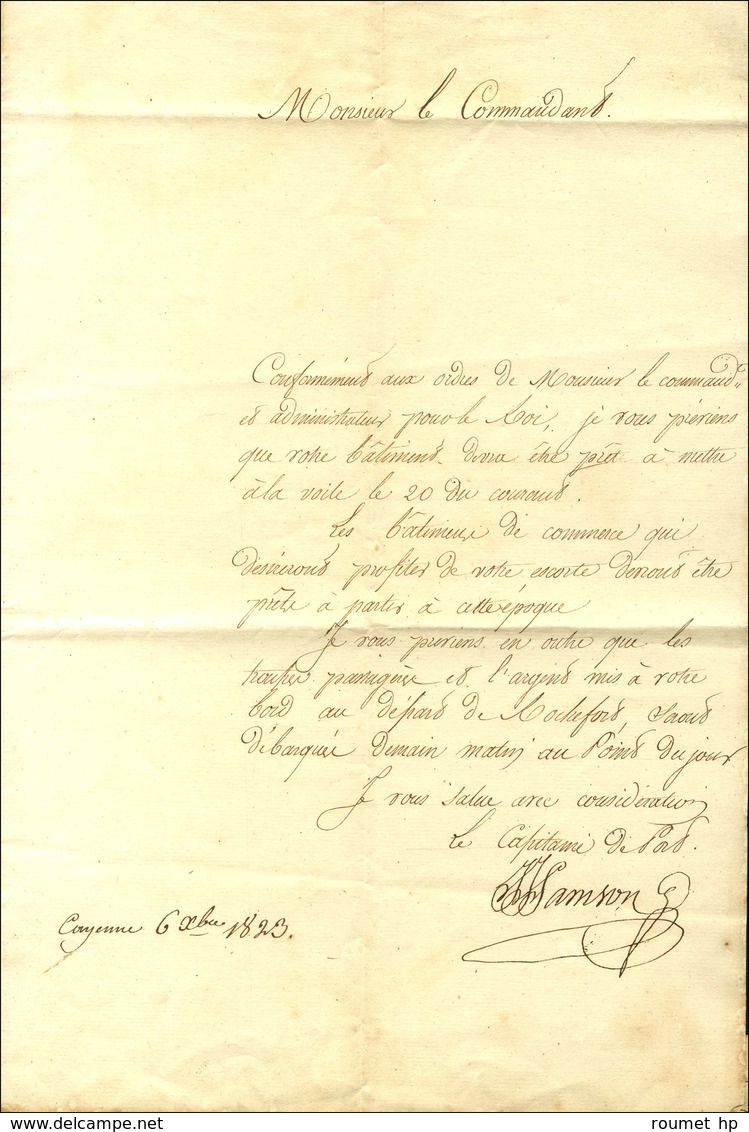 Monsieur le Commandant.
Conformément aux ordres de Monsieur le command.t
et administrateur pour le Roi, je vous préviens
que votre bâtiment devra être prêt à mettre
à la voile le 20 du courant.
Les bâtimens de commerce qui
désireront profiter de votre escorte devront être
prêts à partir à cette époque
Je vous préviens en outre que les
troupes passagères et l'argent mis à votre
bord au départ de Rochefort, seront
débarqués demain matin au Point du jour
Je vous salue avec considération
Le Capitaine de Port.
Samson
Cayenne 6 Xbre 1823.
delcampe.net
roumet hp